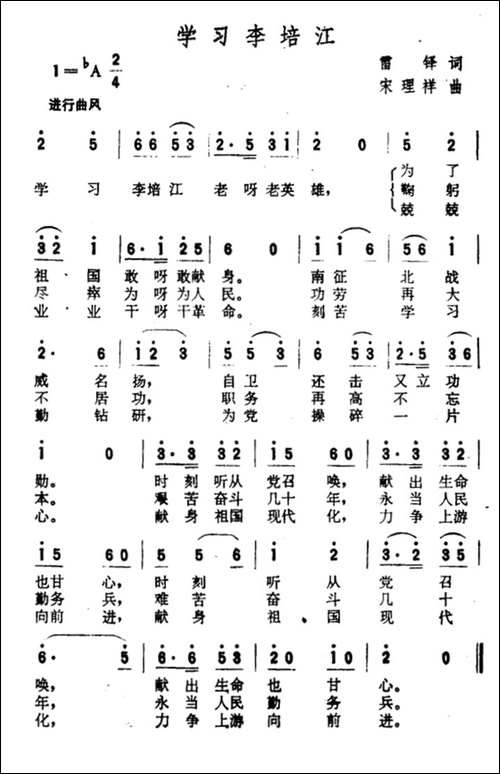 学习李培江
1=♭A 2/4
雷铎 词
宋理祥 曲
进行曲风
2 5 | 6 6 5 3 | 2· 5 3 1 | 2 0 | 5 2 |
学 习 李培江 老 呀 老英 雄， 为 了
鞠 躬
兢 兢
3 2 1 | 6· 1 2 5 | 6 0 | 1 1 6 | 5 6 1 |
祖 国 敢 呀 敢献 身。 南征 北 战
尽 瘁 为 呀 为人 民。 功劳 再 大
业 业 干 呀 干革 命。 刻苦 学 习
2· 6 | 1 2 3 | 5· 5 | 6 5 3 | 2· 5 | 3 6 |
威 名 扬， 自 卫 还 击 又 立 功
不 居 功， 职 务 再 高 不 忘
勤 钻 研， 为 党 操 碎 一 片
1 0 | 3· 3 3 2 | 1 5 6 0 | 3· 3 3 2 |
勋。 时 刻 听从 党召 唤， 献 出 生命
本。 艰 苦 奋斗 几十 年， 永 当 人民
心。 献 身 祖国 现代 化， 力 争 上游
1 5 6 0 | 5 5 5 6 | 1 2 | 3· 2 3 5 |
也甘 心， 时 刻 听 从 党 召
勤务 兵， 难 苦 奋 斗 几 十
向前 进， 献 身 祖 国 现 代
6· 5 | 6· 6 5 3 | 2 0 1 0 | 2 0 ‖
唤， 献 出 生命 也 甘 心。
年， 永 当 人民 勤 务 兵。
化， 力 争 上游 向 前 进。